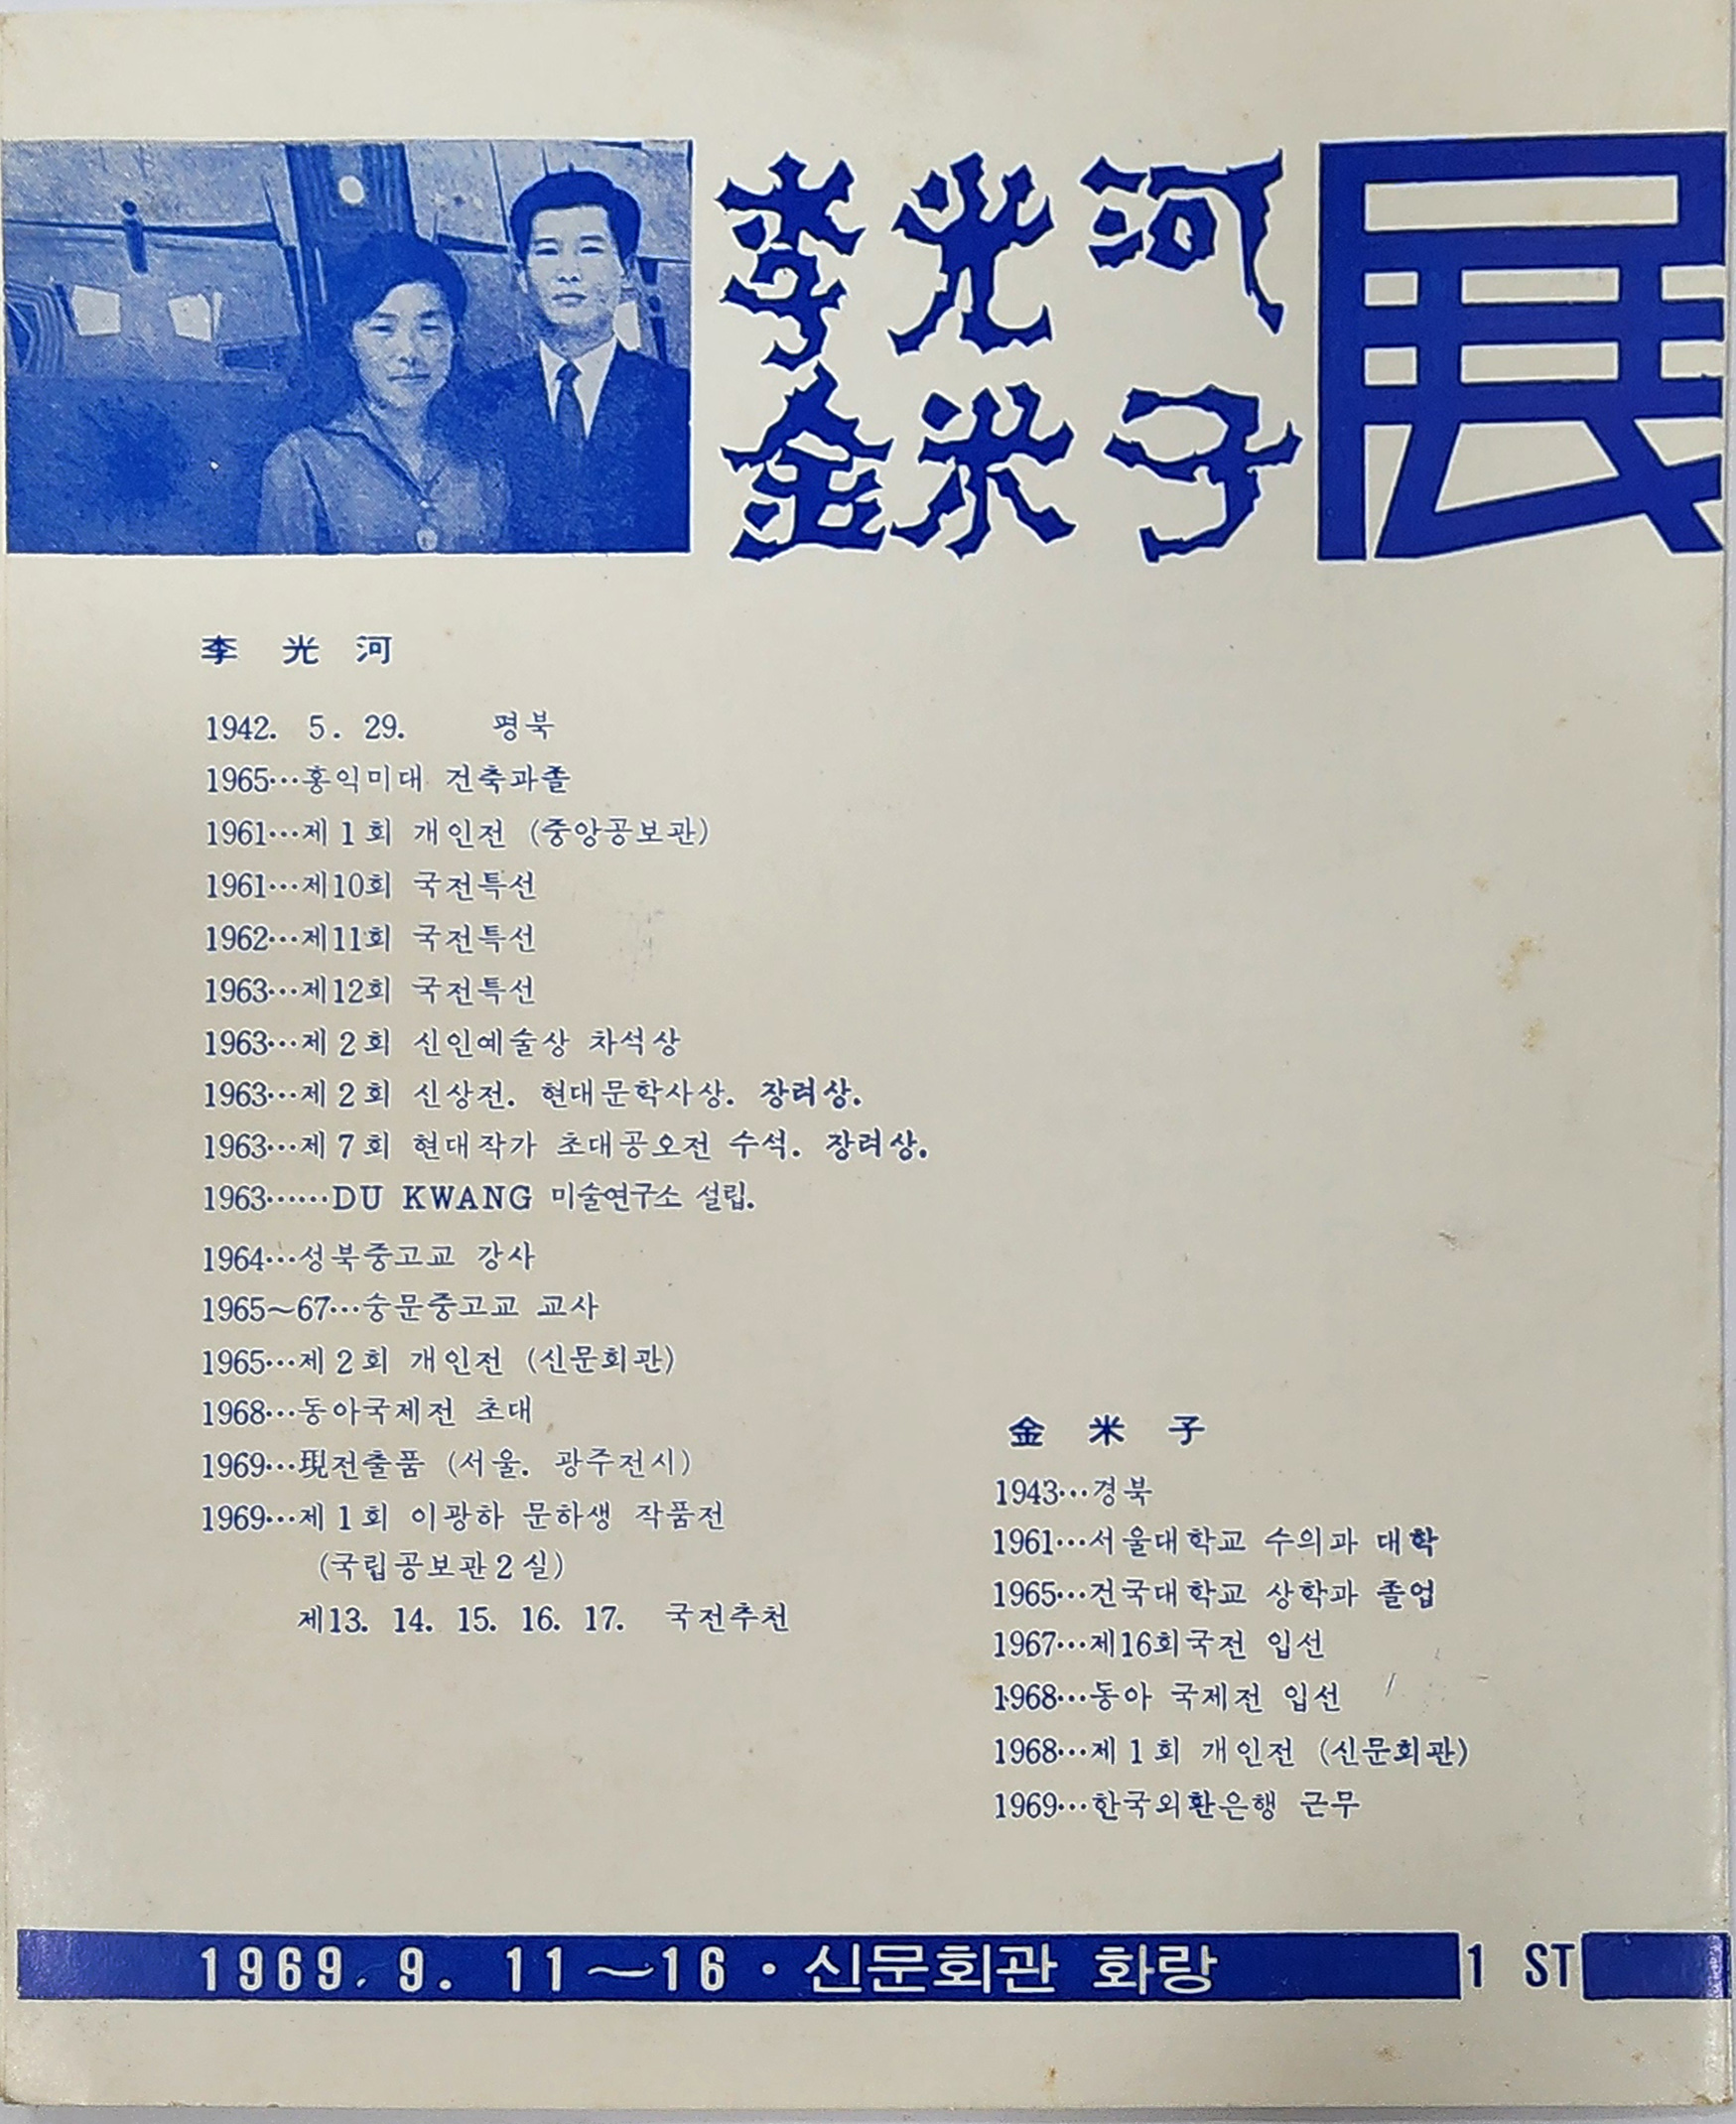 李光河
金米子
展
李 光 河
1942. 5. 29. 평북
1965…홍익미대 건축과졸
1961…제1회 개인전 (중앙공보관)
1961…제10회 국전특선
1962…제11회 국전특선
1963…제12회 국전특선
1963…제2회 신인예술상 차석상
1963…제2회 신상전. 현대문학사상. 장려상.
1963…제7회 현대작가 초대공오전 수석. 장려상.
1963……DU KWANG 미술연구소 설립.
1964…성북중고교 강사
1965~67…숭문중고교 교사
1965…제2회 개인전 (신문회관)
1968…동아국제전 초대
1969…現전출품 (서울. 광주전시)
1969…제1회 이광하 문하생 작품전
(국립공보관2실)
제13. 14. 15. 16. 17. 국전추천
金 米 子
1943…경북
1961…서울대학교 수의과 대학
1965…건국대학교 상학과 졸업
1967…제16회국전 입선
1968…동아 국제전 입선
1968…제1회 개인전 (신문회관)
1969…한국외환은행 근무
1969. 9. 11~16·신문회관 화랑 1 ST